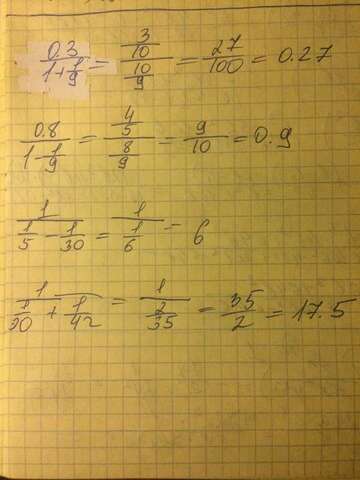 0.3/(1+1/9) = (3/10)/(10/9) = 27/100 = 0.27
0.8/(1-1/9) = (4/5)/(8/9) = 9/10 = 0.9
1/(1/5-1/30) = 1/(1/6) = 6
1/(1/30+1/42) = 1/(2/35) = 35/2 = 17.5